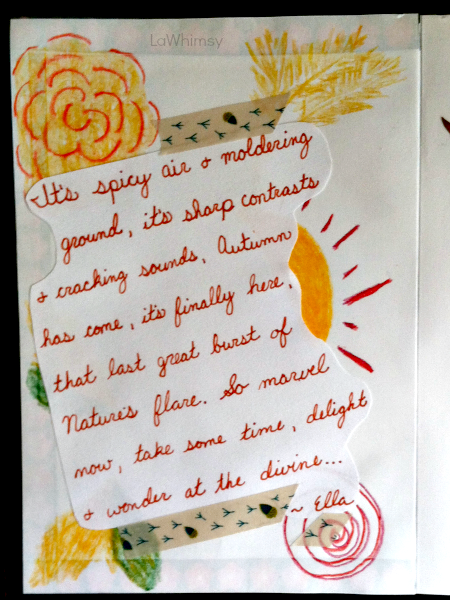 LaWhimsy
It's spicy air & moldering
ground, it's sharp contrasts
& cracking sounds, Autumn
has come, it's finally here,
that last great burst of
Nature's flare. So marvel
now, take some time, delight
& wonder at the divine...
~ Ella